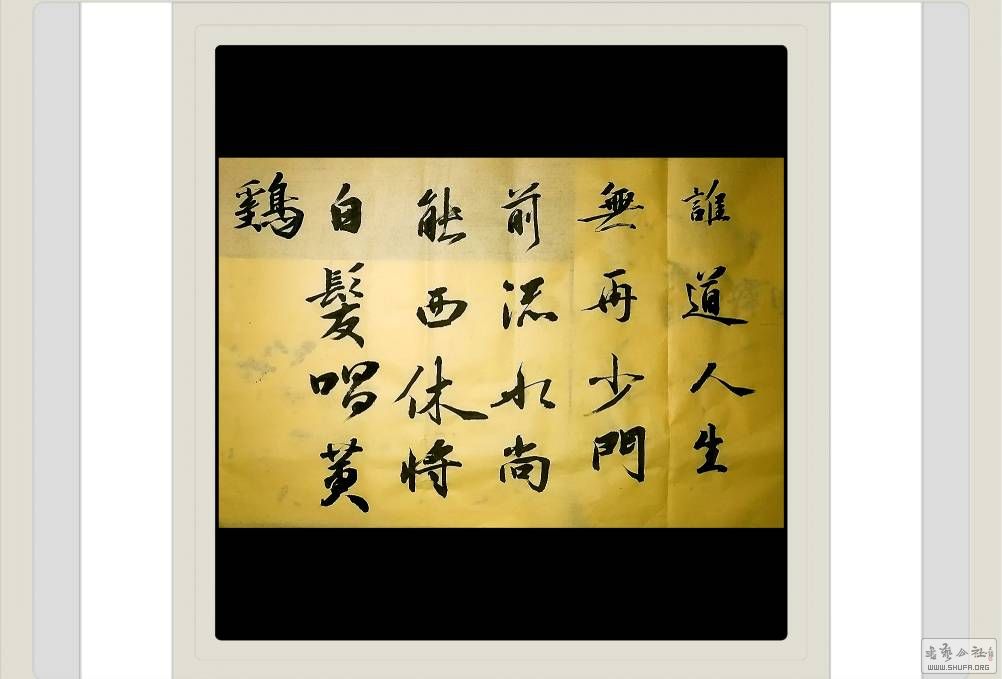 誰道人生
無再少門
前流水尚
能西休將
白髮唱黃
鷄
书艺公社
WWW.SHUFA.ORG